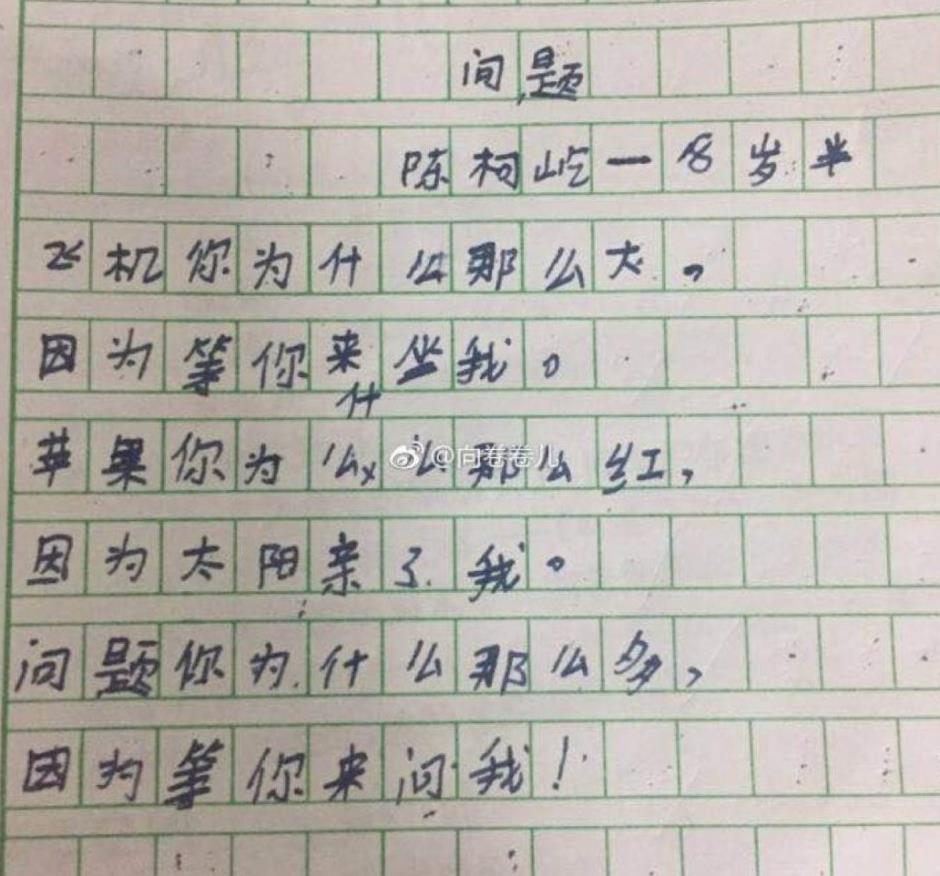 问题
陈柯屹一8岁半
飞机你为什么那么大,
因为等你来坐我。
苹果你为什么那么红,
@向卷卷儿
因为太阳亲了我。
问题你为什么那么多,
因为等你来问我!